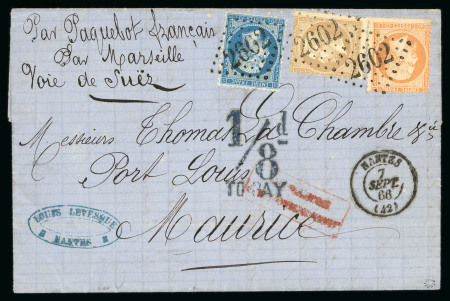 Par Paquebot français
Par Marseille
Voie de Suéz
2602
2602
2602
Messieurs Thomas La Chambe & Cie
1/8d
TO PAY
Port Louis
Maurice
NANTES
7
SEPT.
66
(42)
LOUIS LEVESQUE
NANTES